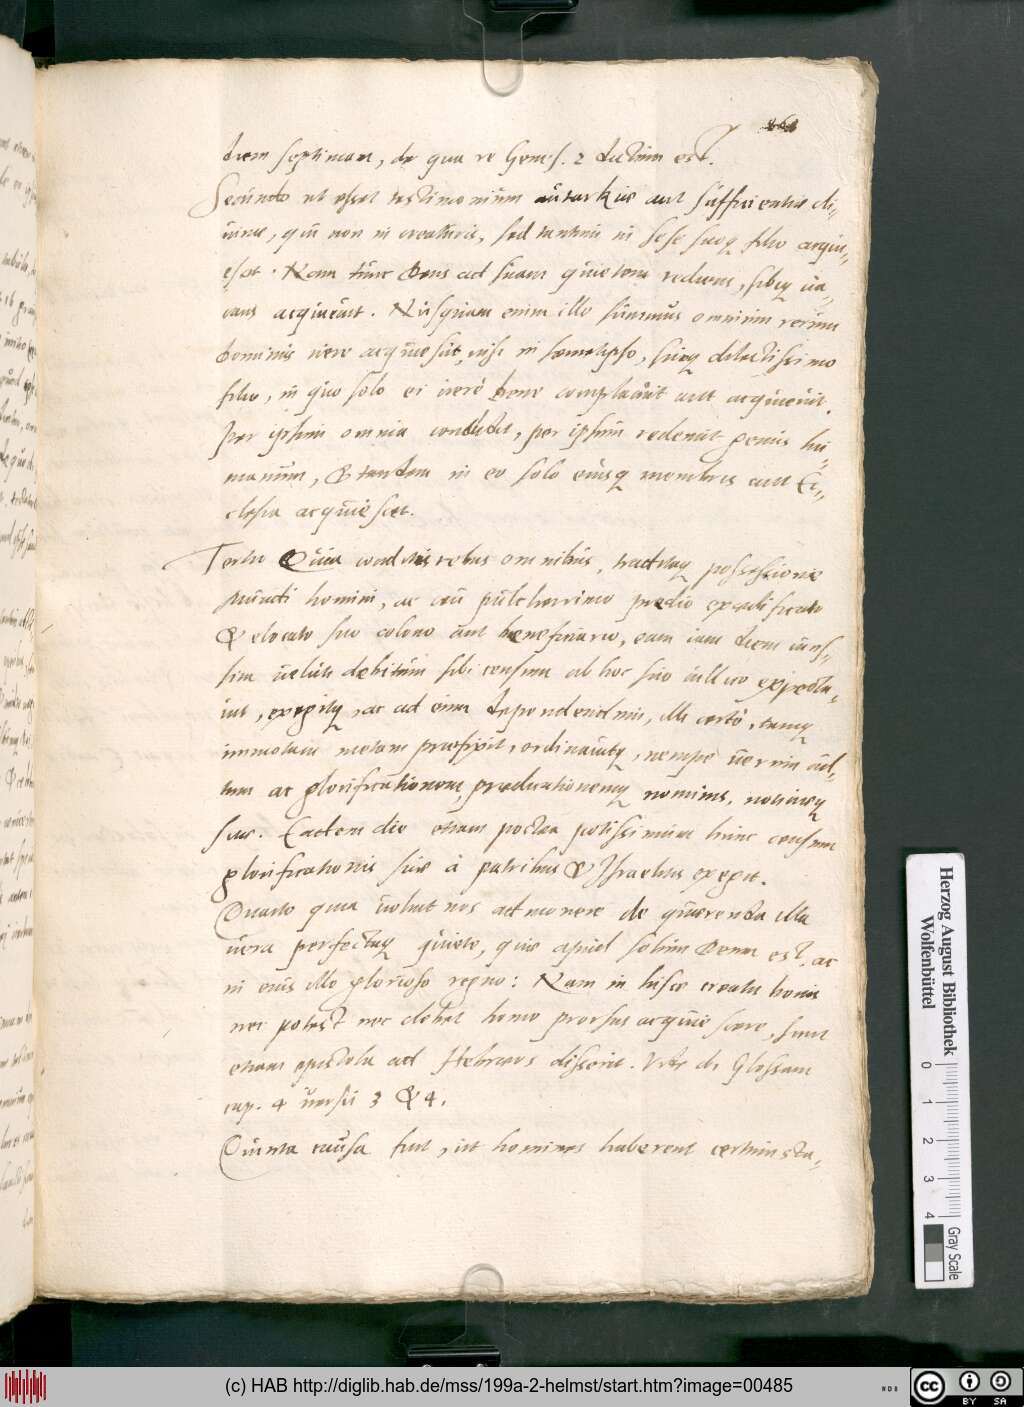 diem septimam, de qua re Genes. 2 dictum est.
Secundo ut esset testimonium autarkiae aut sufficientiae di-
uinae, qui non in creaturis, sed tantum in sese suoq filio acqui-
escat. Nam tunc Deus ad suam quietem rediens, sibiq ua-
cans acquieuit. Nusquam enim ille summus omnium rerum
Dominus uere acquiescit, nisi in semetipso, suoq dilectissimo
filio, in quo solo ei uerè bene complacuit aut acquieuit.
Per ipsum omnia condidit, per ipsum redemit genus hu-
manum, & tandem in eo solo eiusq membris aut Ec-
clesia acquiescet.
Tertio Quia conditis rebus omnibus, traditaq possessione
homini, ac ceu pulcherrimo predio exaedificato
& elocato suo colono aut beneficiario, eam iam diem
sim ueluti debitum sibi censum ab hoc suo
uit, exegitq, ac ad eum dependendum, illi certo, tamq
immotam metam praefixit, ordinauitq, nempe uerum cul-
tum ac glorificationem, praedicationemq nominis, notitiaeq
suae. Eadem die etiam postea potissimum hunc censum
glorificationis suae à patribus & Israelitis exegit.
Quarto quia uoluit nos admonere de quaerenda illa
uera perfectaq quiete, quae apud solum Deum est, ac
in eius illo glorioso regno: Nam in hisce creatis bonis
nec potest nec debet homo prorsus acquiescere, sicut
etiam epistola ad Hebraeos disserit. Vide Glossam
cap. 4 uersu 3 & 4.
Quinta causa fuit, ut homines haberent certum sta-
Herzog August Bibliothek
Wolfenbüttel
0 1 2 3 4
Gray Scale
(c) HAB http://diglib.hab.de/mss/199a-2-helmst/start.htm?image=00485
cc BY SA